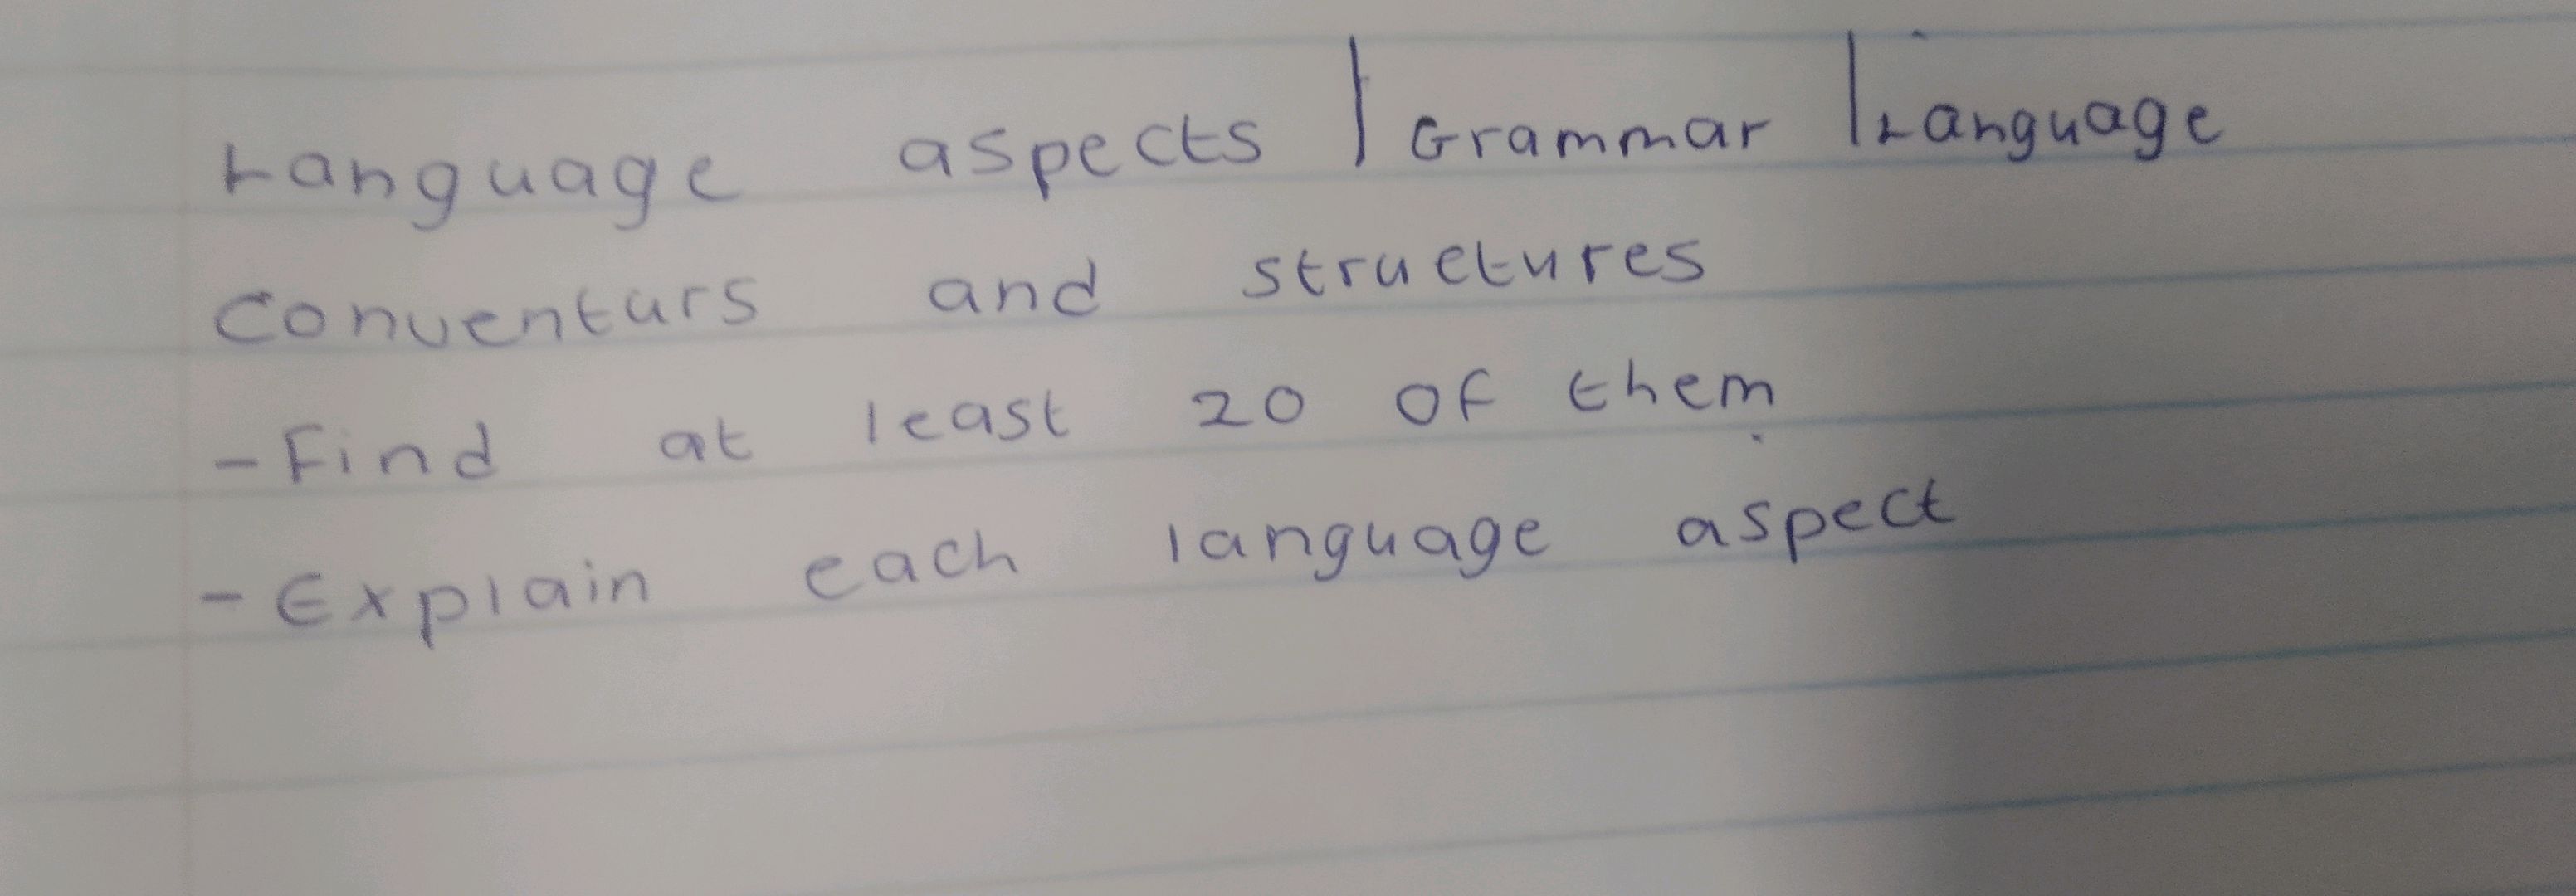 Language aspects | Grammar | Language
Conventurs and structures
- Find at least 20 of them
- Explain each language aspect